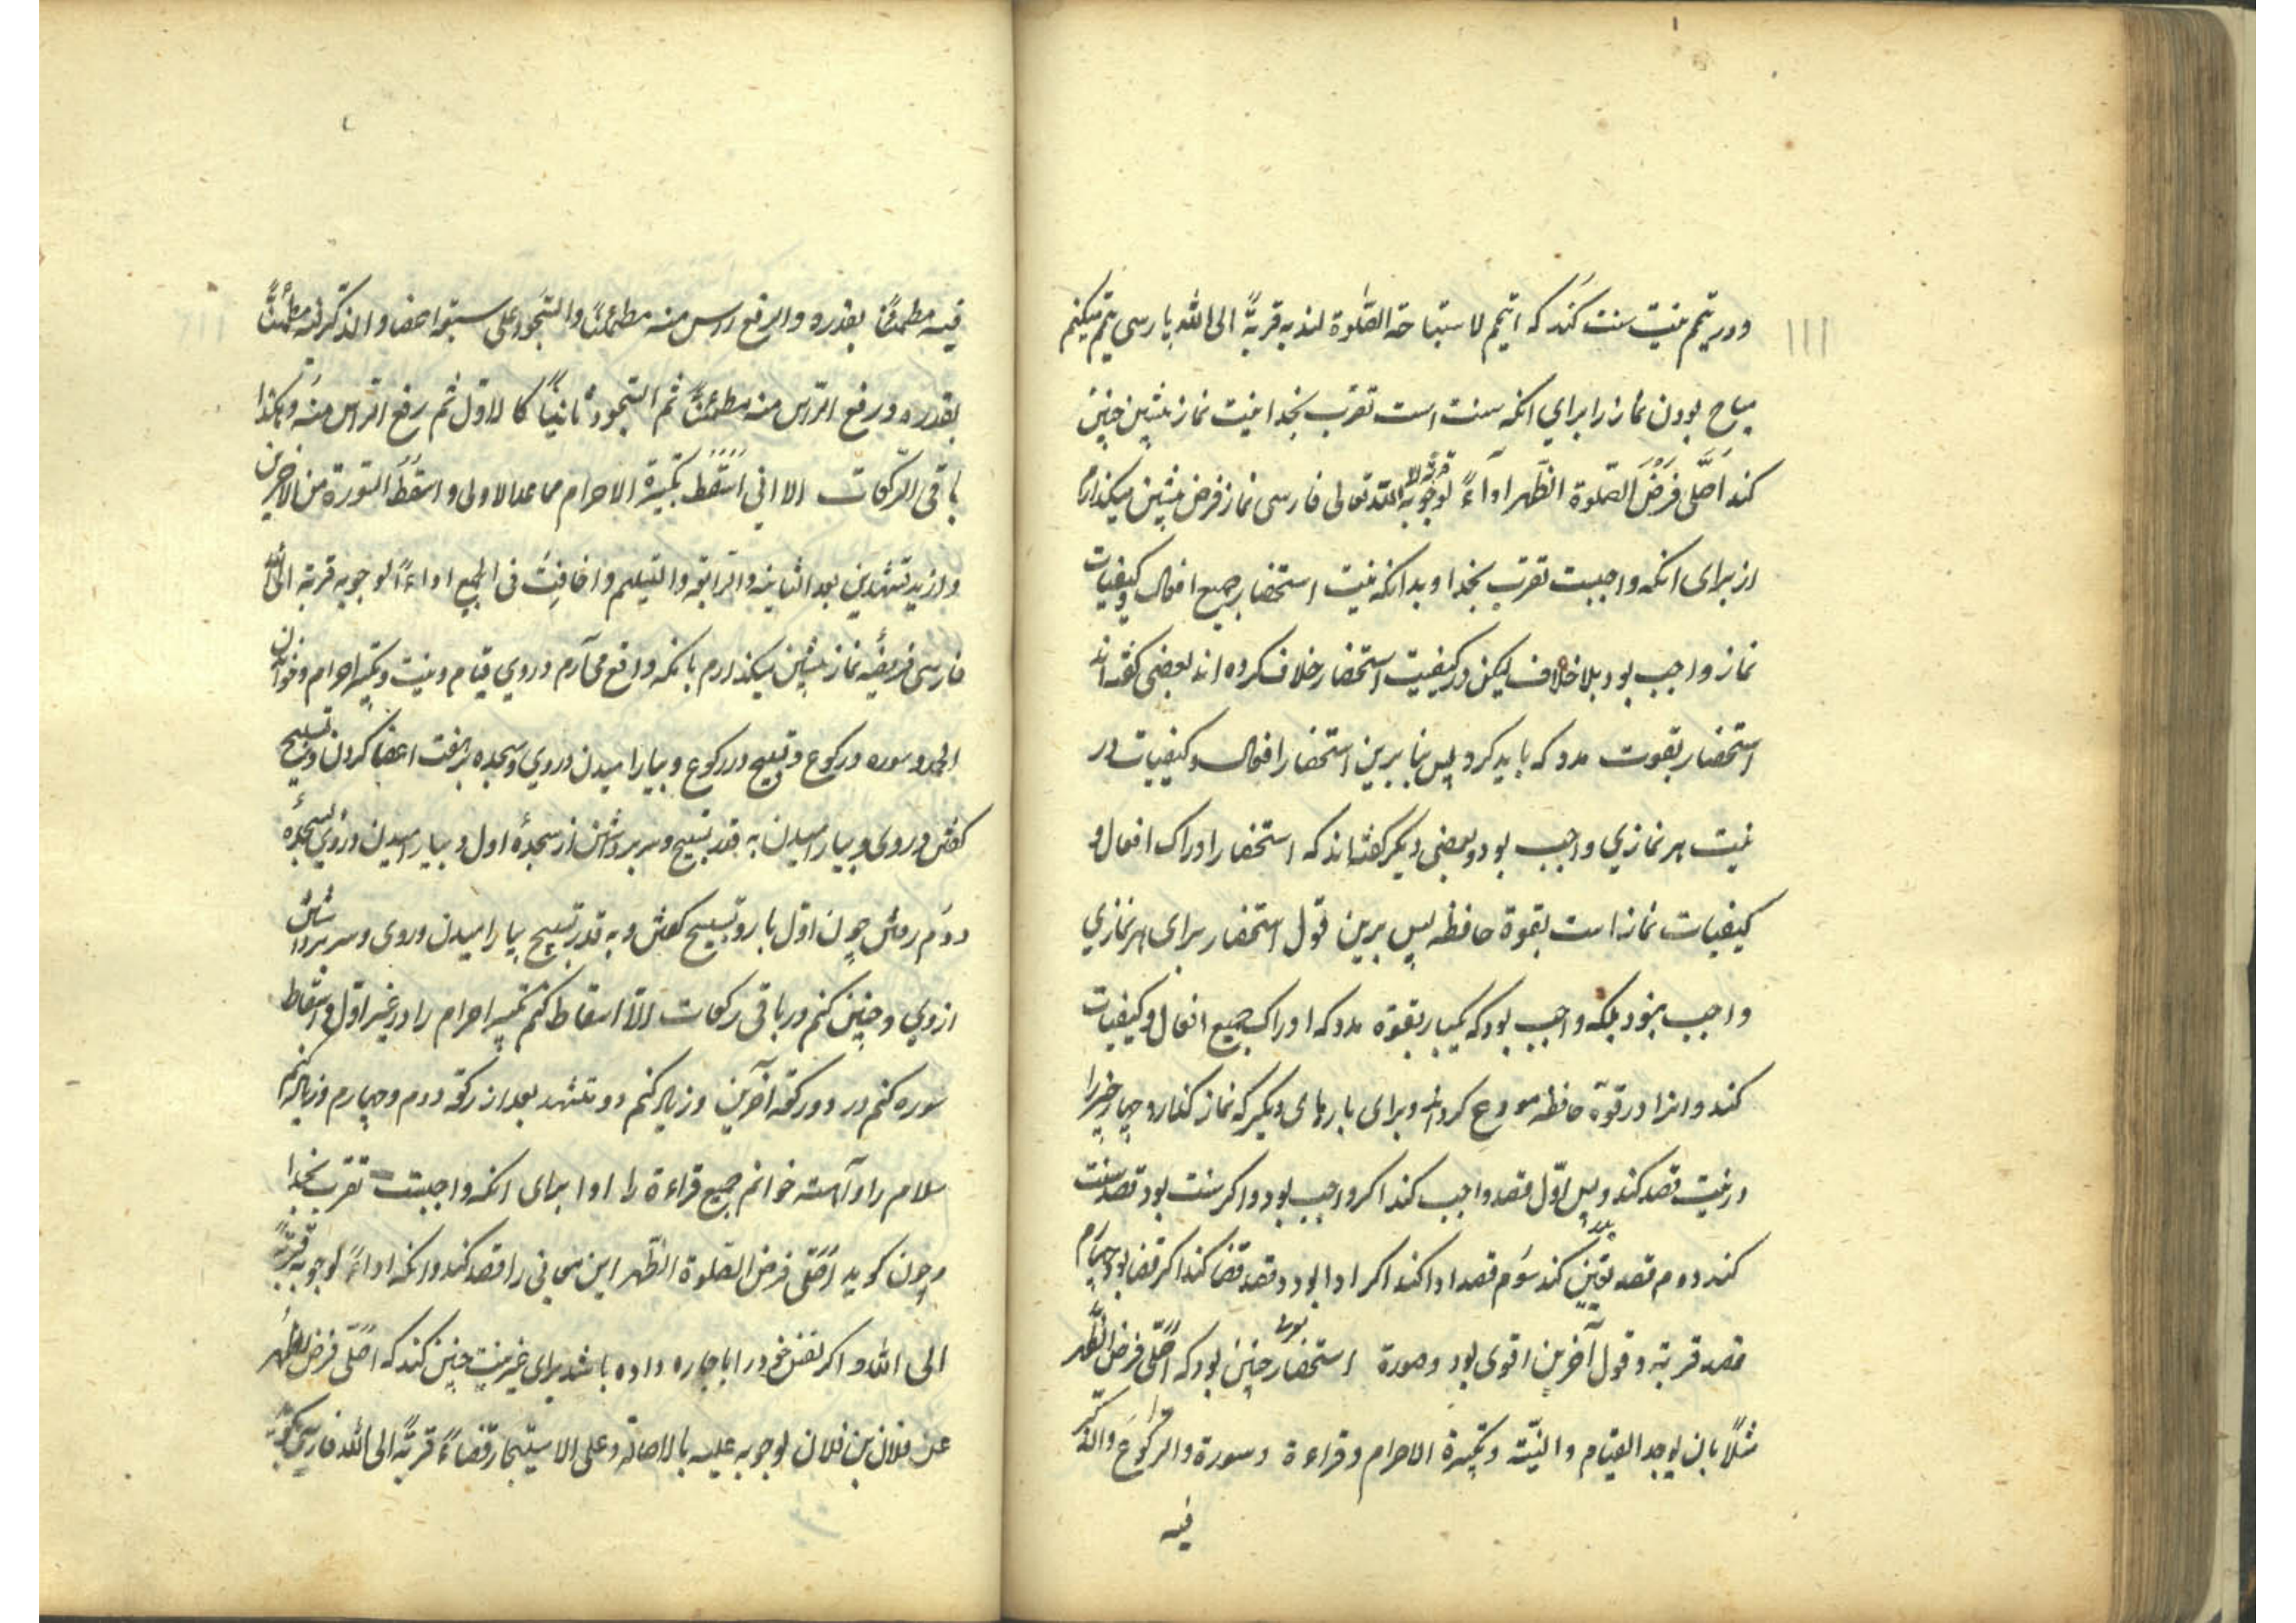 ۱۱۱
ودر تیمم نیت سنت کند که اتیمم لاستباحة الصلوة لندبه قربةً الی الله پارسی تیمم میکنم
مباح بودن نماز را برای انکه سنت است تقرب بخدا نیت نماز پیشین چنین
کند اُصَلّی فَرضَ الصلوة الظهر اداءً لوجوبه قربة الی الله تعالی فارسی نماز فرض پیشین میکذارم
از برای انکه واجبست تقرب بخدا و بدانکه نیت استحضار جمیع افعال و کیفیات
نماز واجب بود بلا خلاف لیکن در کیفیت استحضار خلاف کرده اند بعضی کفته اند
استحضار بقوت مدرکه باید کرد پس بنا برین استحضار افعال و کیفیات در
نیت هر نمازی واجب بود و بعضی دیگر کفته اند که استحضار ادراک افعال و
کیفیات نماز است بقوة حافظه پس برین قول استحضار برای هر نمازی
واجب نبود بلکه واجب بود که یکبار بقوة مدرکه ادراک جمیع افعال و کیفیات
کند و انرا در قوة حافظه مودع کرداند و برای بارهای دیگر که نماز کذارد چهار چیز را
در نیت قصد کند و پس اوّل قصد واجب کند اکر واجب بود و اکر سنت بود قصد سنت
کند دوم قصد تعیین کند سوم قصد ادا کند اکر ادا بود و قصد قضا کند اکر قضا بود چهارم
قصد قربة و قول آخرین اقوی بود و صورة استحضار چنین بود که اُصَلّی فرض الظهر
مثلًا بان یوجد القیام والنیّة وتکبیرة الاحرام وقراءة وسورة والرکوع والذکر
فیه
فیه مطمئنًا بقدره والرفع راس منه مطمئنًا والسجود علی سبعة اعضا والذکر فیه مطمئنًّا
بقدره ورفع الراس منه مطمئنًّا ثم السجود ثانیًا کالاوّل ثم رفع الراس منه وهکذا
باقی الرکعات الا انی اُسقط تکبیرة الاحرام مما عدا الاولی واسقط السورة من الاخیرتین
وازید تشهدین بعد الثانیة والرابعة والتسلیم واخافت فی الجمیع اداءً لوجوبه قربة الی الله
فارسی فریضه نماز پیشین میکذارم بانکه واقع می آرم در وی قیام و نیت و تکبیر احرام و خواندن
الحمد و سوره و رکوع و تسبیح در رکوع و بیارامیدن در وی و سجده بر هفت اعضا کردن و تسبیح
کفتن در وی و بیارامیدن به قدر تسبیح و سر برداشتن از سجدهٔ اول و بیارامیدن در وی سجدهٔ
دوم روش چون اوّل با رو تسبیح کفتن و به قدر تسبیح بیارامیدن در وی و سر برداشتن
از وی و چنین کنم در باقی رکعات الّا اسقاط کنم تکبیر احرام را در غیر اوّل و اسقاط
سوره کنم در دو رکعة آخرین و زیاده کنم دو تشهد بعد از رکعة دوم و چهارم و زیاده کنم
سلام را و آهسته خوانم جمیع قراءة را ادا برای انکه واجبست تقرب بخدا
و چون کوید اُصَلّی فرض الصّلوة الظّهر این معانی را قصد کند و انکه اداءً لوجوبه قربةً
الی الله و اکر نفس خود را با جاره داده باشد برای غیر نیت چنین کند که اُصَلّی فرض الظهر
عن فلان بن فلان لوجوبه علیه بالاصالة وعلی الاستیجار قضاءً قربةً الی الله فارسی کوید